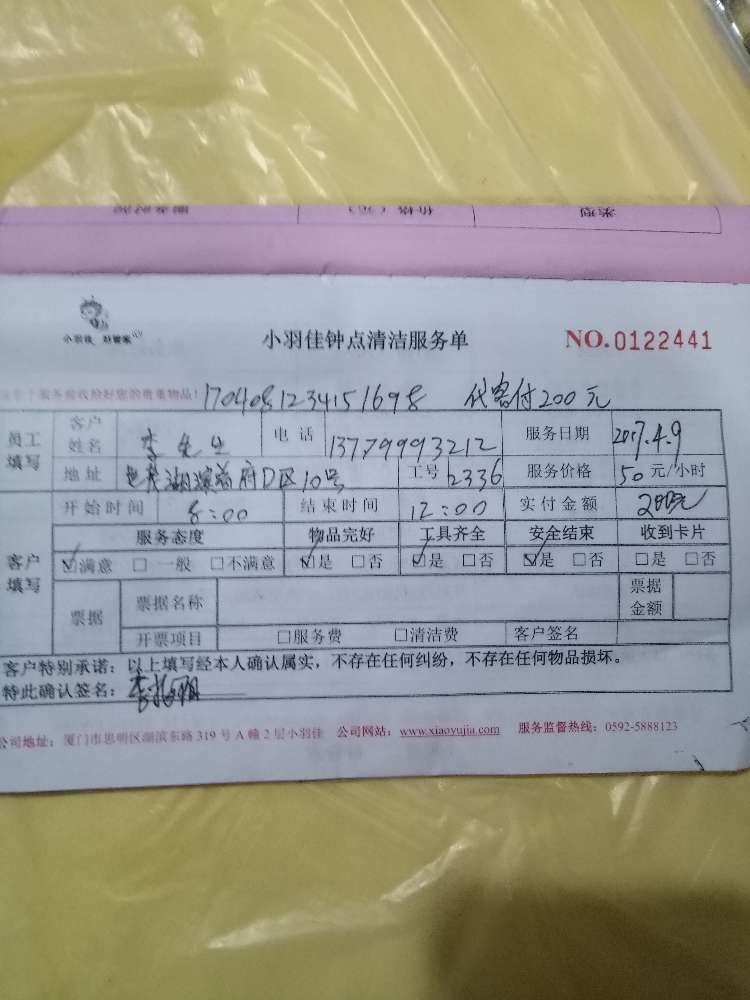 类型 价格(元) 服务时间
小羽佳 好管家
小羽佳钟点清洁服务单
NO.0122441
服务前收拾好您的贵重物品! 1704081234151698 代客付200元
员工填写 客户姓名 李先生 电话 13779993212 服务日期 2017.4.9
地址 湖滨首府D区10号 工号 2336 服务价格 50元/小时
客户填写 开始时间 8:00 结束时间 12:00 实付金额 200元
服务态度 物品完好 工具齐全 安全结束 收到卡片
☑满意 □一般 □不满意 ☑是 □否 ☑是 □否 ☑是 □否 □是 □否
票据 票据名称 票据金额
开票项目 □服务费 □清洁费 客户签名
客户特别承诺:以上填写经本人确认属实,不存在任何纠纷,不存在任何物品损坏。
特此确认签名:
公司地址:厦门市思明区湖滨东路319号A幢2层小羽佳 公司网站:www.xiaoyujia.com 服务监督热线:0592-5888123